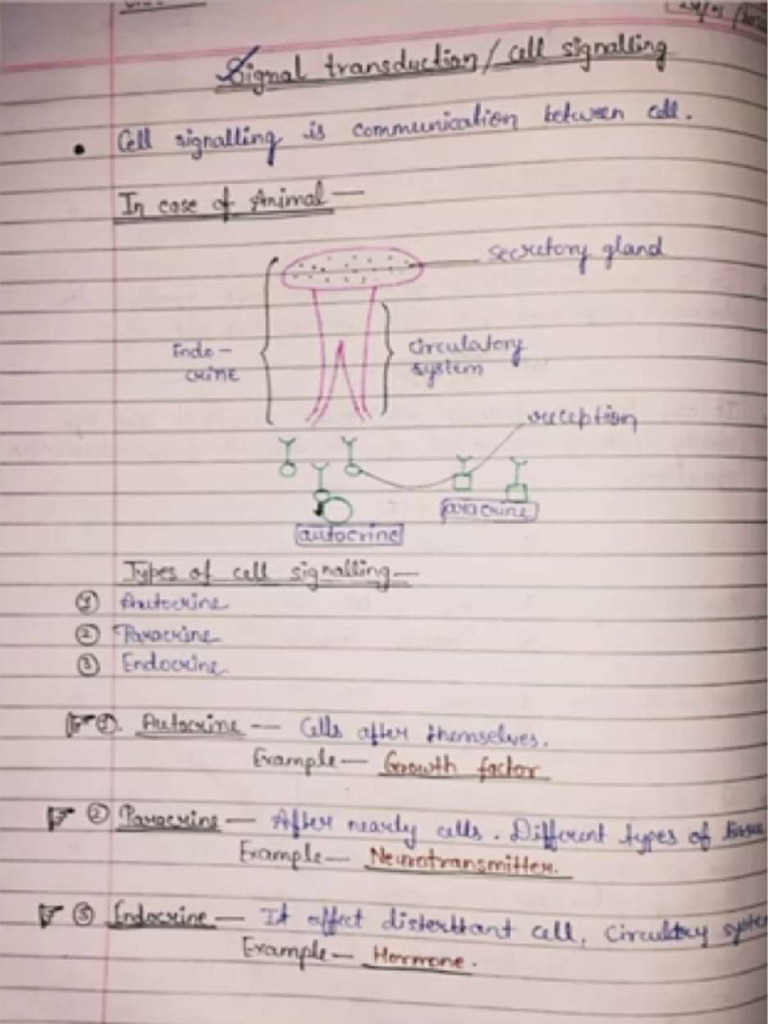 Signal transduction / cell signalling
• Cell signalling is communication between cell.
In case of Animal —
secretory gland
Endo-
crine
circulatory
system
reception
autocrine
paracrine
Types of cell signalling —
① Autocrine
② Paracrine
③ Endocrine
①. Autocrine — Cells after themselves.
Example — Growth factor
② Paracrine — After nearly cells. Different types of
Example — Neurotransmitter.
③ Endocrine — It affect disterttant cell, Circulatory syste
Example — Hormone.